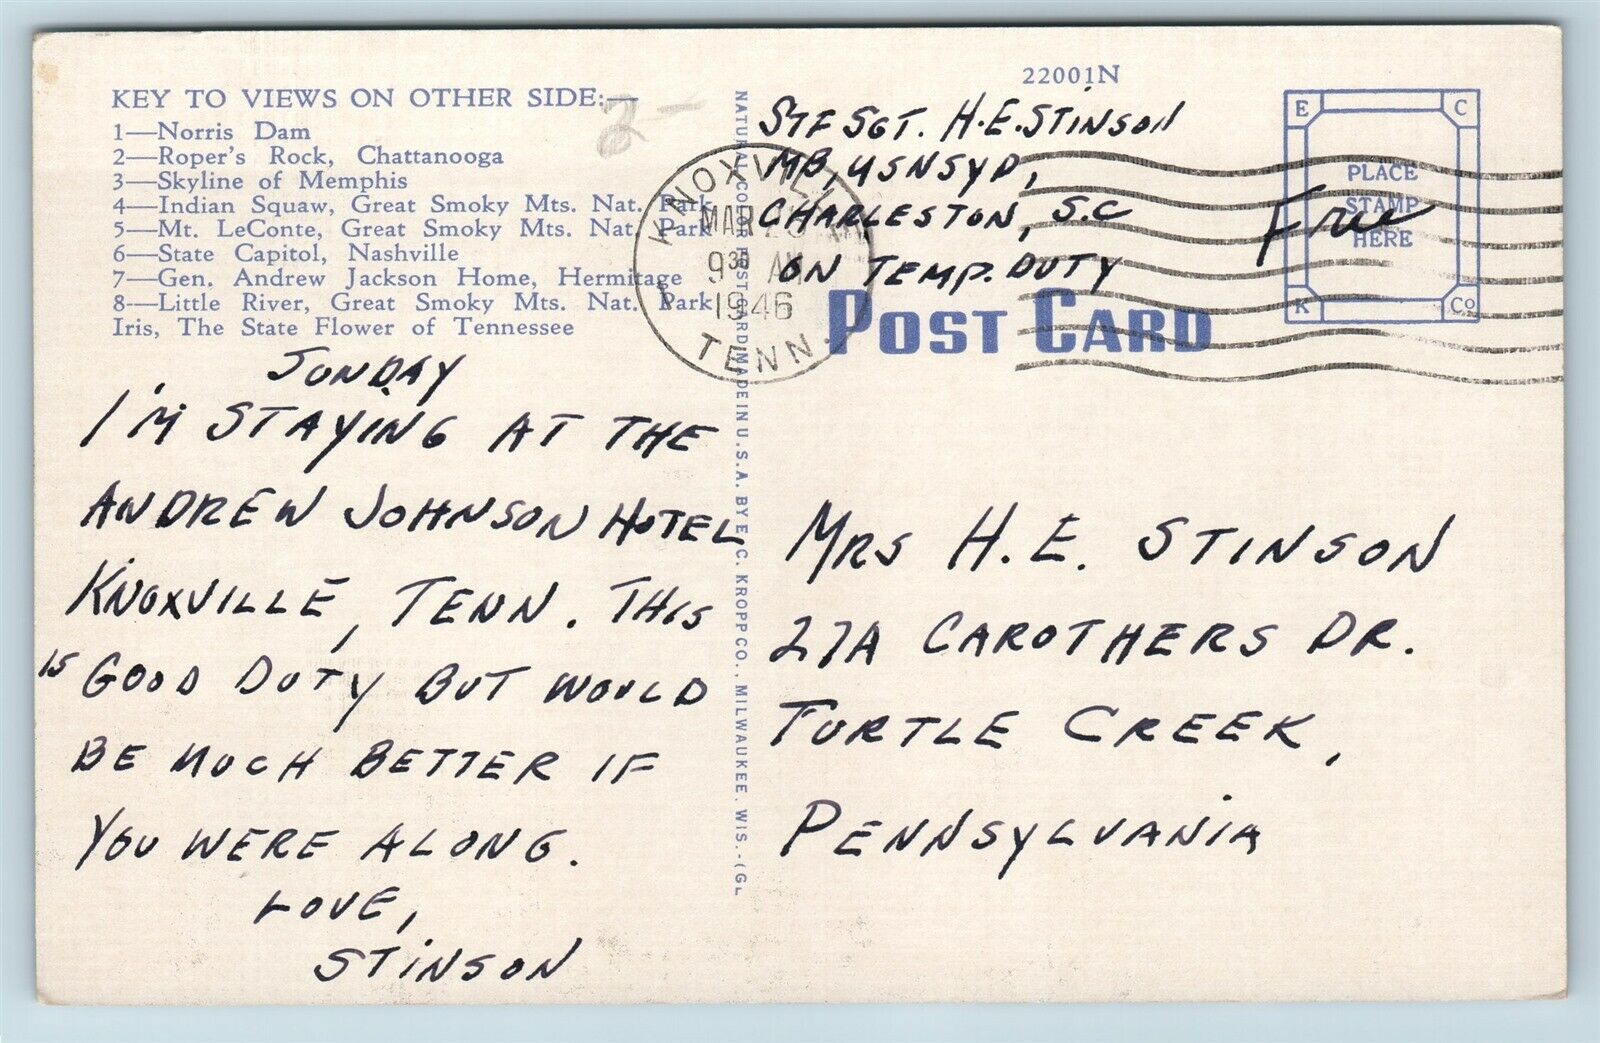 22001N
KEY TO VIEWS ON OTHER SIDE:—
1—Norris Dam
2—Roper's Rock, Chattanooga
3—Skyline of Memphis
4—Indian Squaw, Great Smoky Mts. Nat. Park
5—Mt. LeConte, Great Smoky Mts. Nat. Park
6—State Capitol, Nashville
7—Gen. Andrew Jackson Home, Hermitage
8—Little River, Great Smoky Mts. Nat. Park
Iris, The State Flower of Tennessee
2-
SUNDAY
I'M STAYING AT THE
ANDREW JOHNSON HOTEL
KNOXVILLE, TENN. THIS
IS GOOD DUTY BUT WOULD
BE MUCH BETTER IF
YOU WERE ALONG.
LOVE,
STINSON
NATURAL COLOR POST CARD MADE IN U.S.A. BY E.C. KROPP CO., MILWAUKEE, WIS.-(GL
KNOXVILLE
MAR
9 30 AM
1946
TENN.
STF SGT. H.E. STINSON
MB, USNSYD,
CHARLESTON, S.C
ON TEMP. DUTY
POST CARD
E C
PLACE
STAMP
HERE
K CO
Free
MRS H.E. STINSON
27A CAROTHERS DR.
TURTLE CREEK,
PENNSYLVANIA